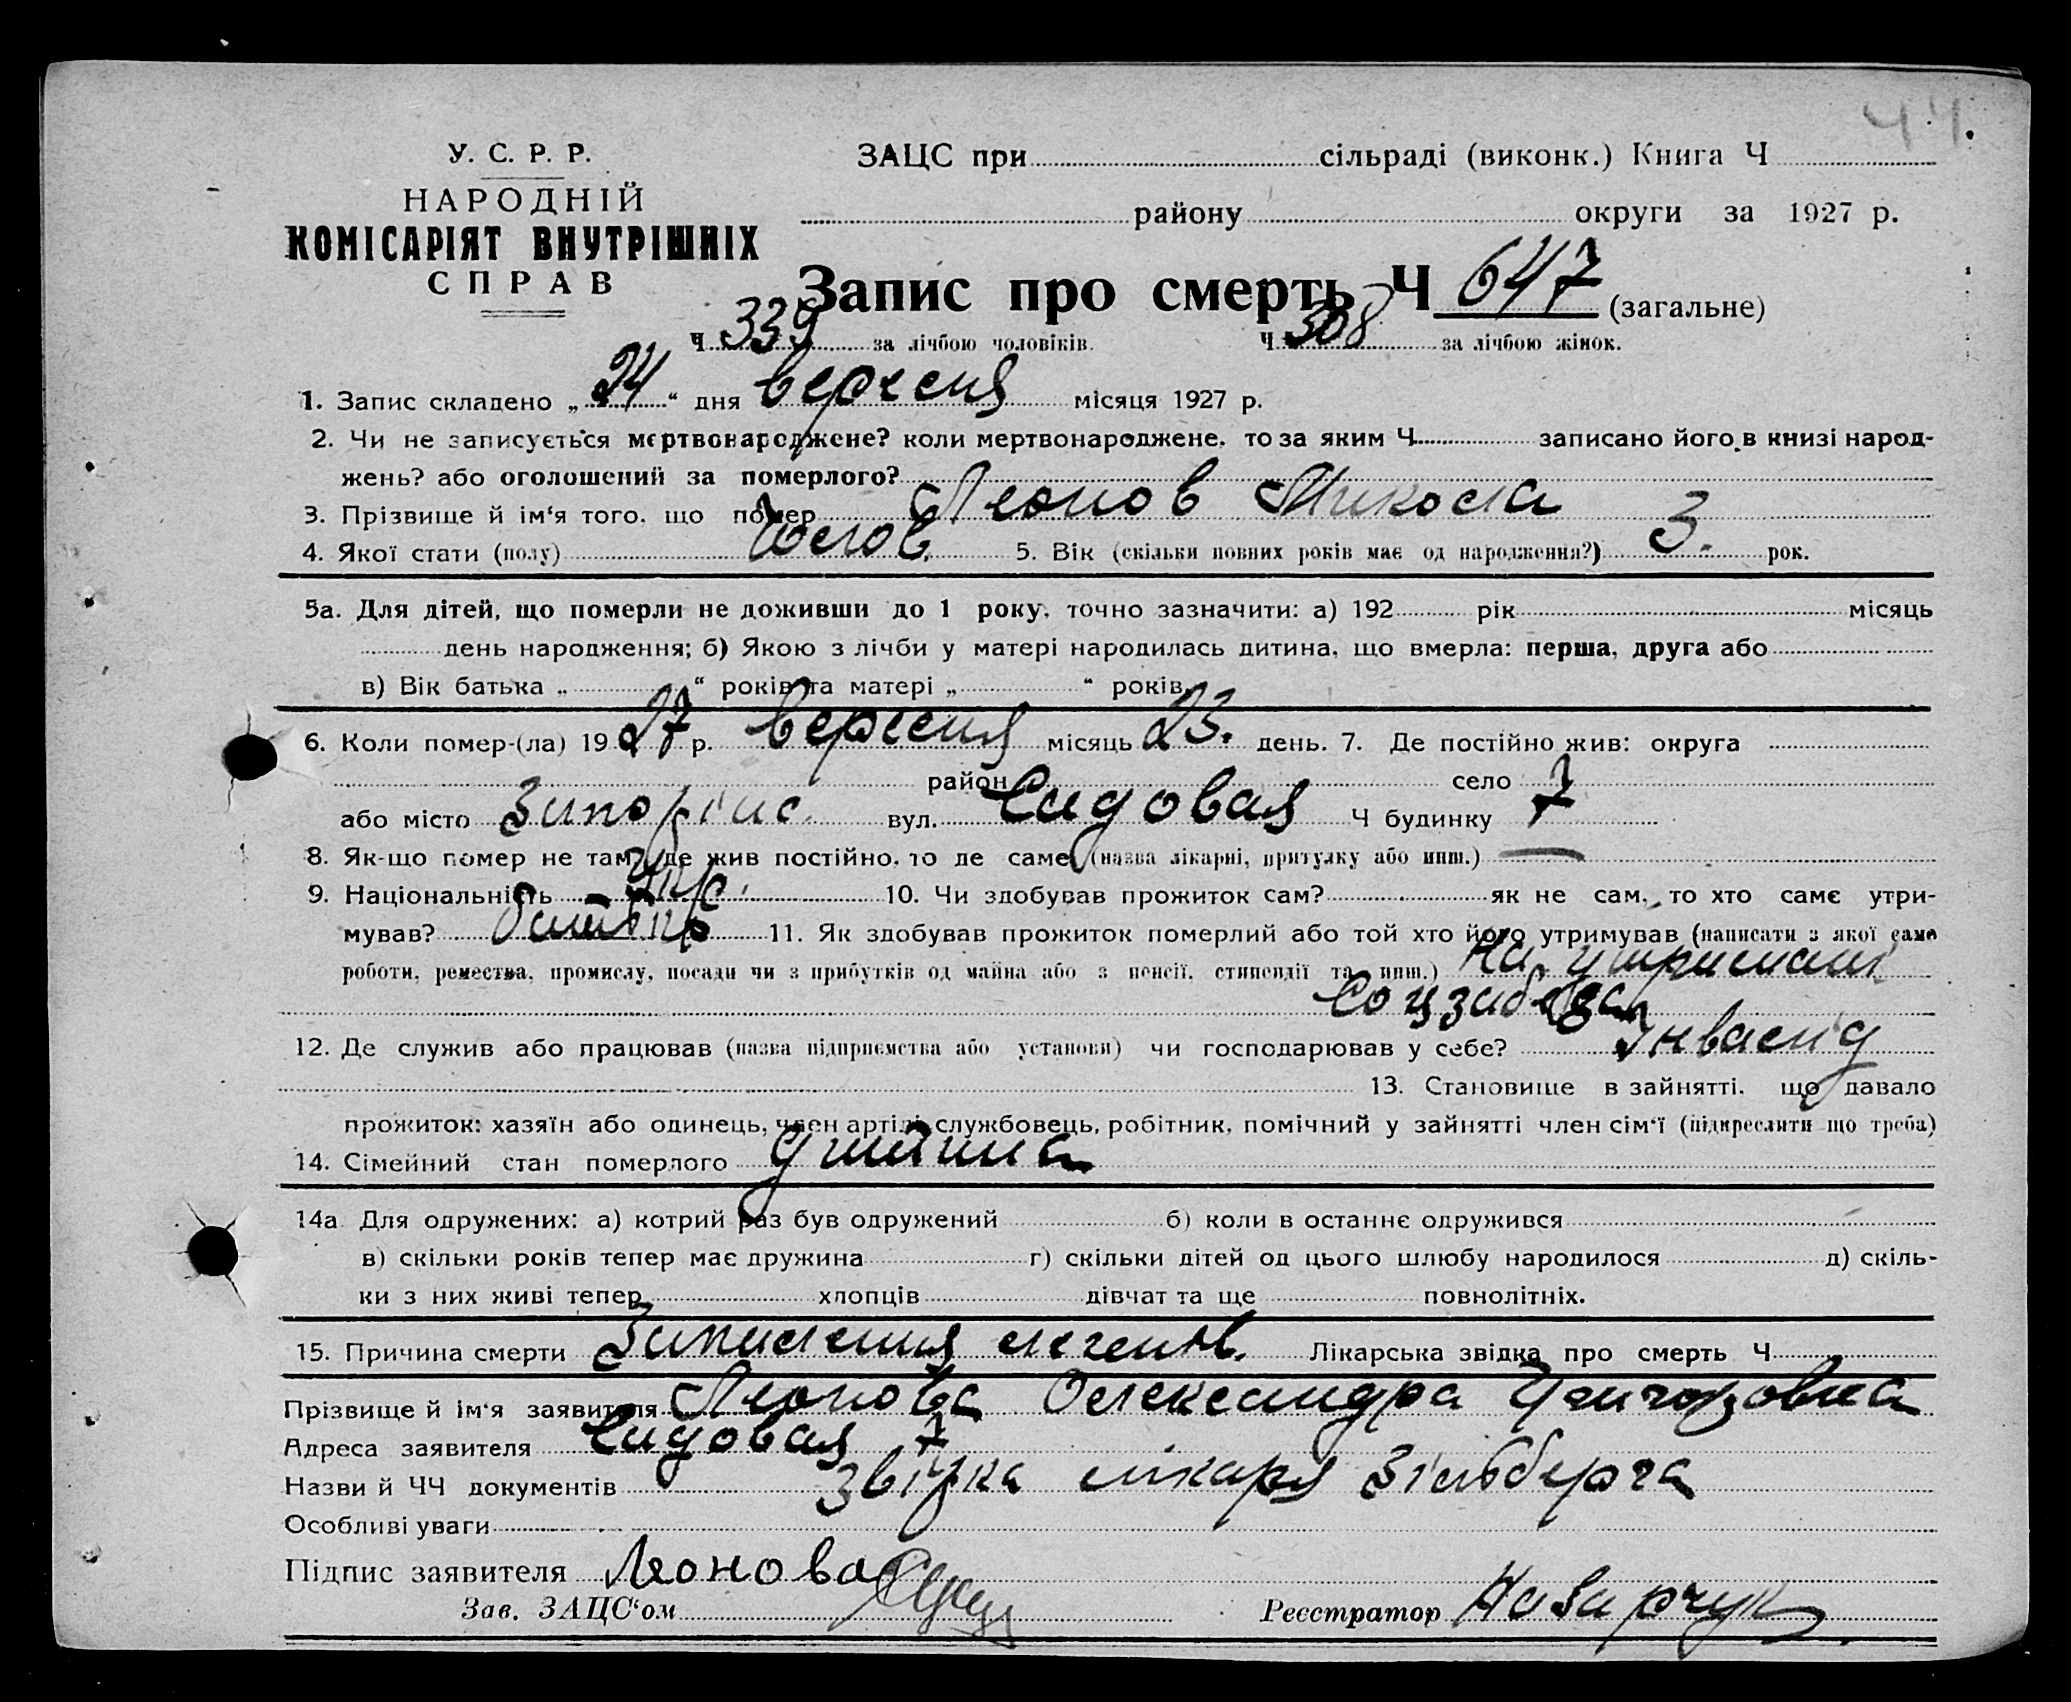 44.
У. С. Р. Р.
НАРОДНІЙ
КОМІСАРІЯТ ВНУТРІШНІХ
СПРАВ
ЗАЦС при сільраді (виконк.) Книга Ч
району округи за 1927 р.
Запис про смерть Ч 647 (загальне)
Ч 339 за лічбою чоловіків. Ч 308 за лічбою жінок.
1. Запис складено „ 24 “ дня вересня місяця 1927 р.
2. Чи не записується мертвонароджене? коли мертвонароджене, то за яким Ч записано його в книзі народ-
жень? або оголошений за померлого?
3. Прізвище й ім'я того, що помер Леонов Микола
4. Якої стати (полу) Чолов. 5. Вік (скільки повних років має од народження?) 3. рок.
5а. Для дітей, що померли не доживши до 1 року, точно зазначити: а) 192 рік місяць
день народження; б) Якою з лічби у матері народилась дитина, що вмерла: перша, друга або
в) Вік батька „ “ років та матері „ “ років.
6. Коли помер-(ла) 19 27 р. вересня місяць 23. день. 7. Де постійно жив: округа
район село
або місто Запоріжс. вул. Садовая Ч будинку 7
8. Як-що помер не там, де жив постійно, то де саме (назва лікарні, притулку або инш.) —
9. Національність Укр. 10. Чи здобував прожиток сам? як не сам, то хто саме утри-
мував? 11. Як здобував прожиток померлий або той хто його утримував (написати з якої саме
роботи, ремества, промислу, посади чи з прибутків од майна або з пенсії, стипендії та инш.) На утриманні
Соцзабеза
12. Де служив або працював (назва підприємства або установи) чи господарював у себе? Інвалид
13. Становище в зайнятті, що давало
прожиток: хазяїн або одинець, член артілі, службовець, робітник, помічний у зайнятті член сім'ї (підкреслити що треба)
14. Сімейний стан померлого дитина
14а. Для одружених: а) котрий раз був одружений б) коли в останнє одружився
в) скільки років тепер має дружина г) скільки дітей од цього шлюбу народилося д) скіль-
ки з них живі тепер хлопців дівчат та ще повнолітніх.
15. Причина смерти Запалення легенів. Лікарська звідка про смерть Ч
Прізвище й ім'я заявителя Леонова Олександра Григоровна
Адреса заявителя Садовая 7
Назви й ЧЧ документів звідка лікаря Зільберга
Особливі уваги
Підпис заявителя Леонова
Зав. ЗАЦС'ом Реєстратор Назарчук